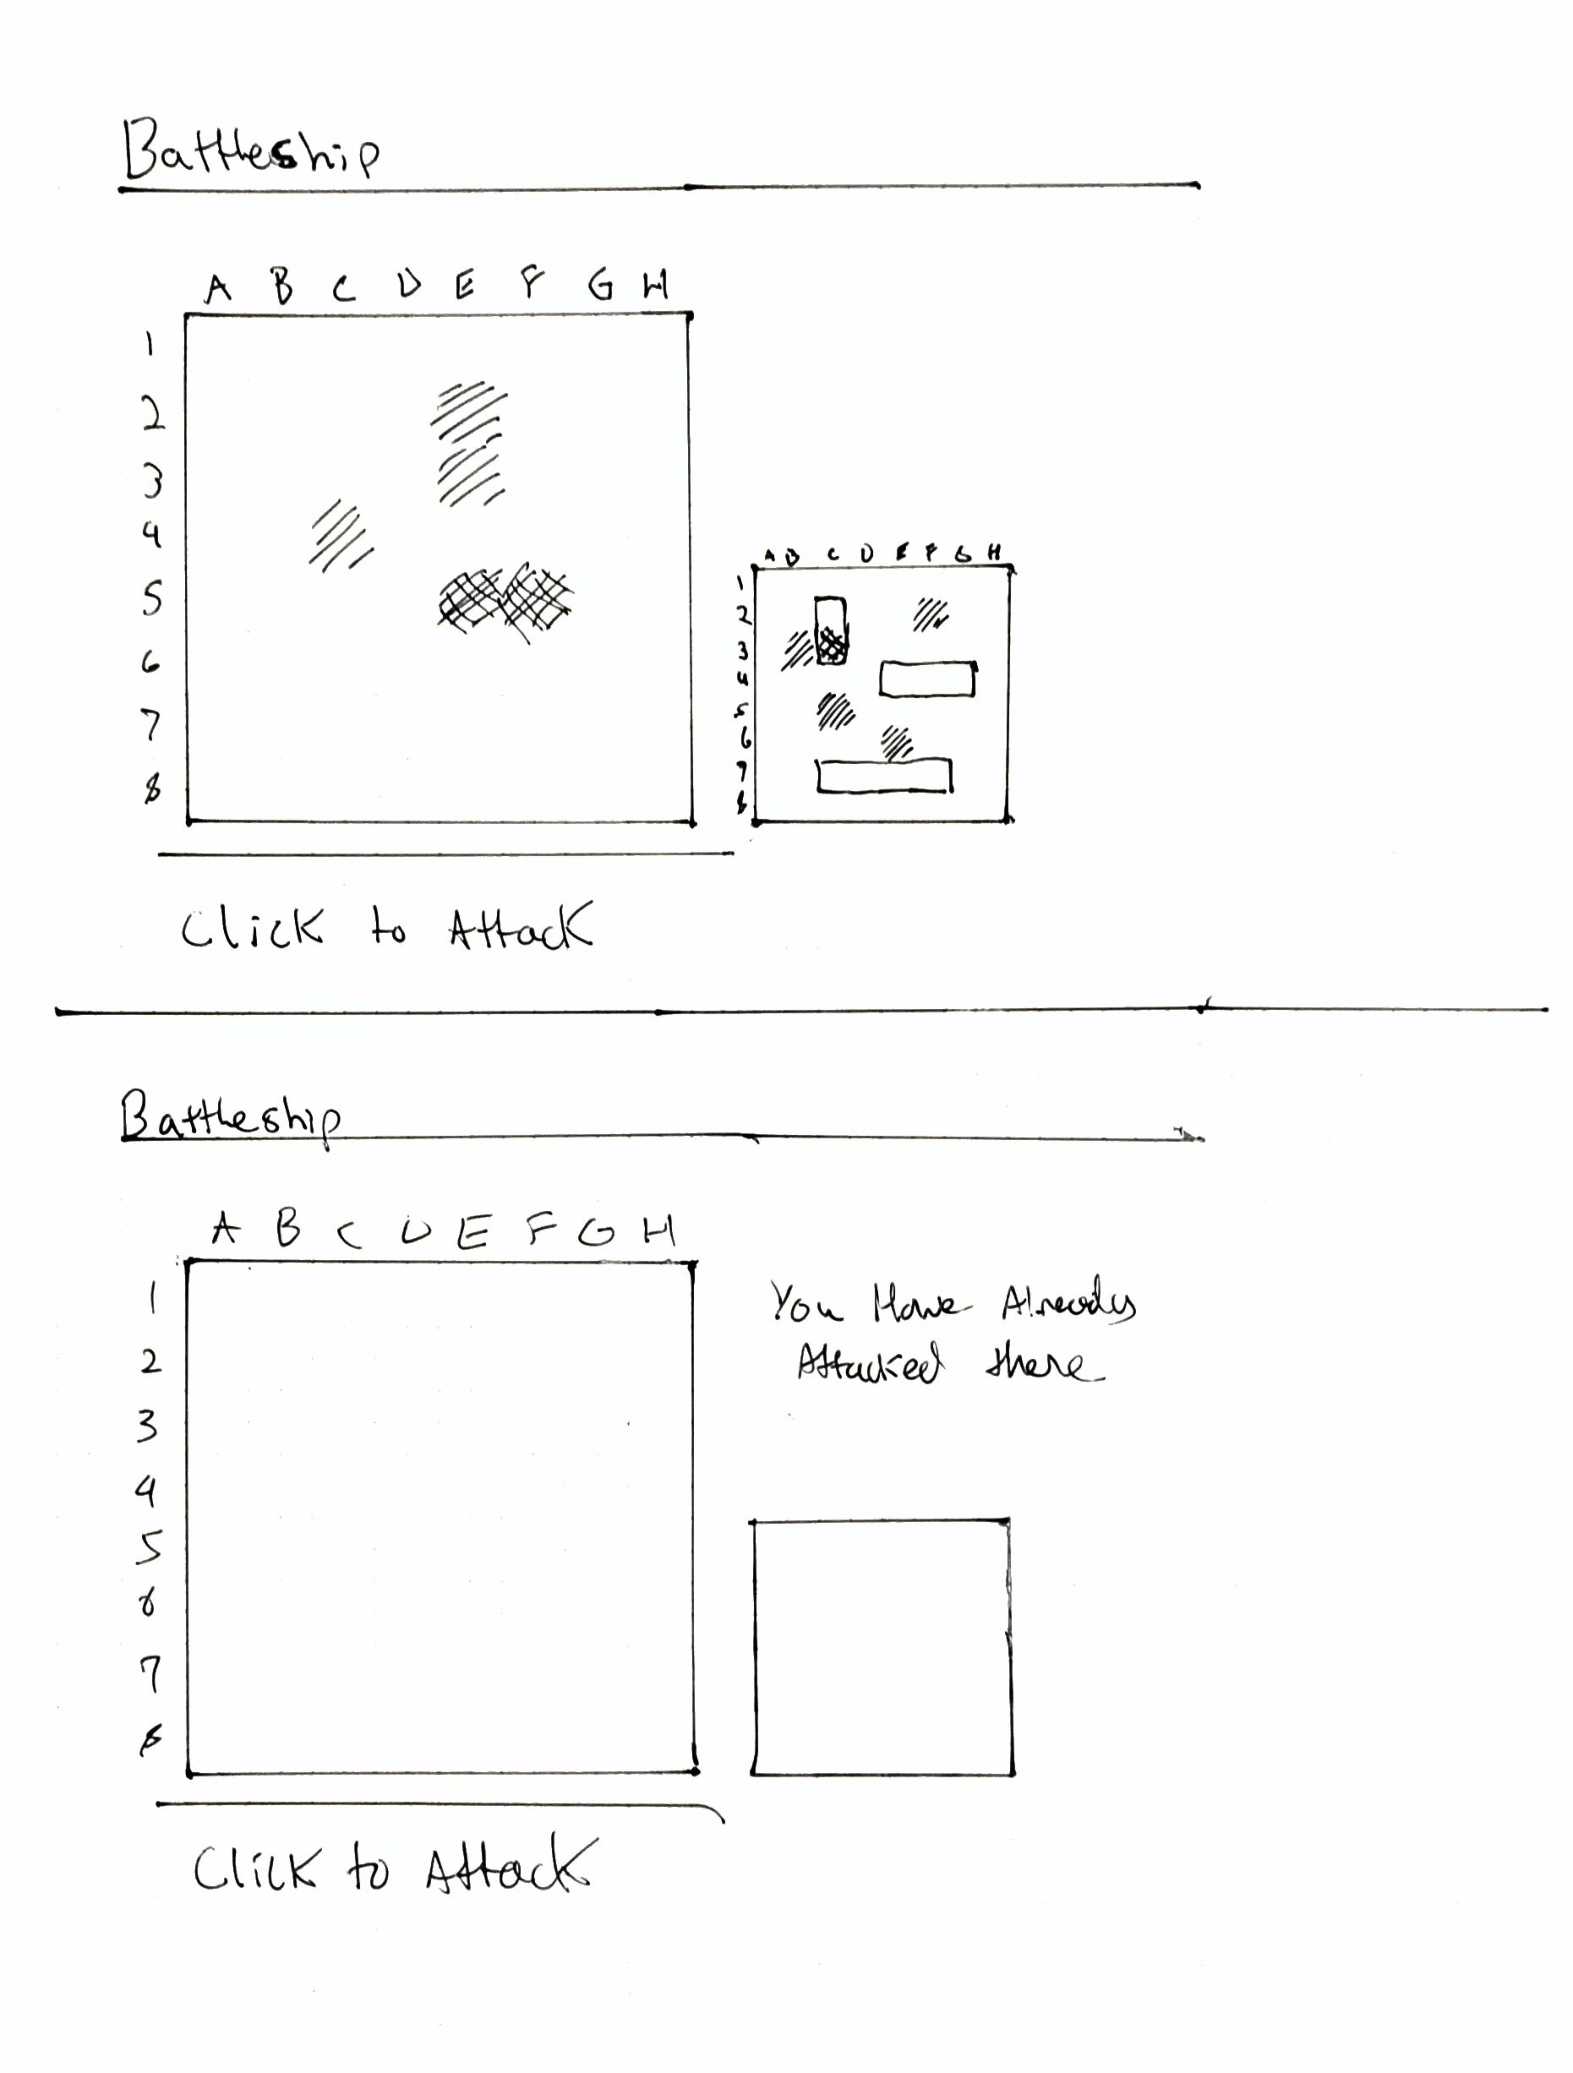 Battleship
A B C D E F G H
1
2
3
4
5
6
7
8
A B C D E F G H
1
2
3
4
5
6
7
8
Click to Attack
Battleship
A B C D E F G H
1
2
3
4
5
6
7
8
You Have Already
Attacked there
Click to Attack